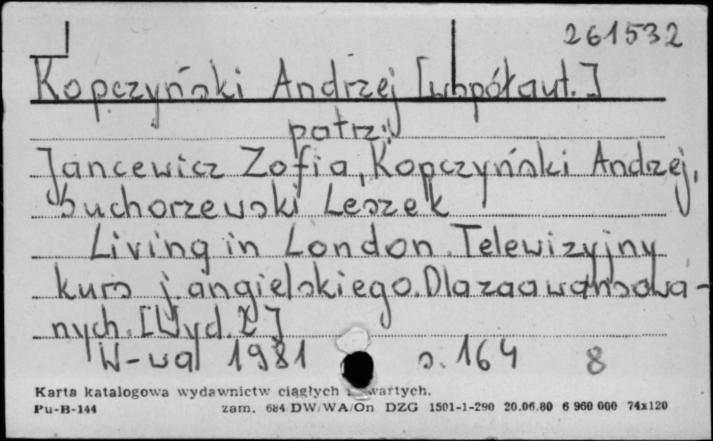 261532
Kopczyński Andrzej [współaut.]
patrz:
Jancewicz Zofia, Kopczyński Andrzej,
Suchorzewski Leszek
Living in London. Telewizyjny
kurs j. angielskiego. Dla zaawansowa-
nych. [Wyd.] 
W-wa 1981 s. 164 8
Karta katalogowa wydawnictw ciągłych i zwartych.
Pu-B-144 zam. 684 DW/WA/On DZG 1501-1-290 20.06.80 6 960 000 74x120